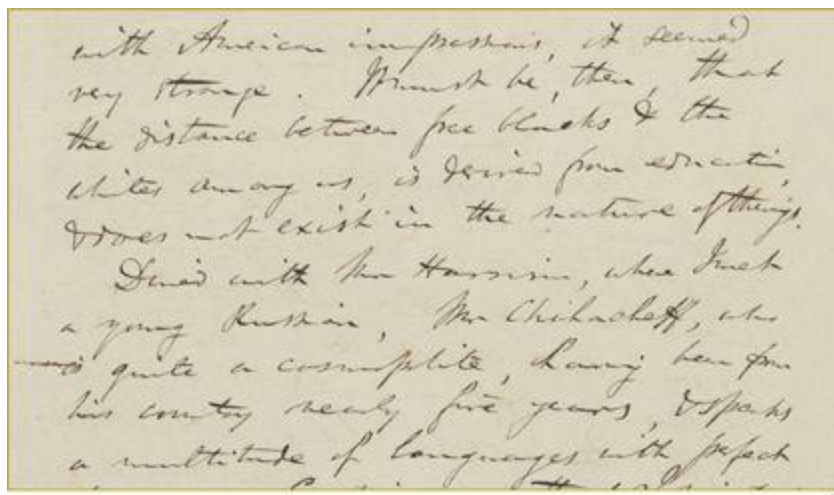 with American impressions, it seemed
very strange. It must be, then, that
the distance between free blacks & the
whites among us, is derived from education,
& does not exist in the nature of things.
Dined with Mr Harrison, where I met
a young Russian, Mr Chihacheff, who
is quite a cosmopolite, having been from
his country nearly five years, & speaks
a multitude of languages with perfect